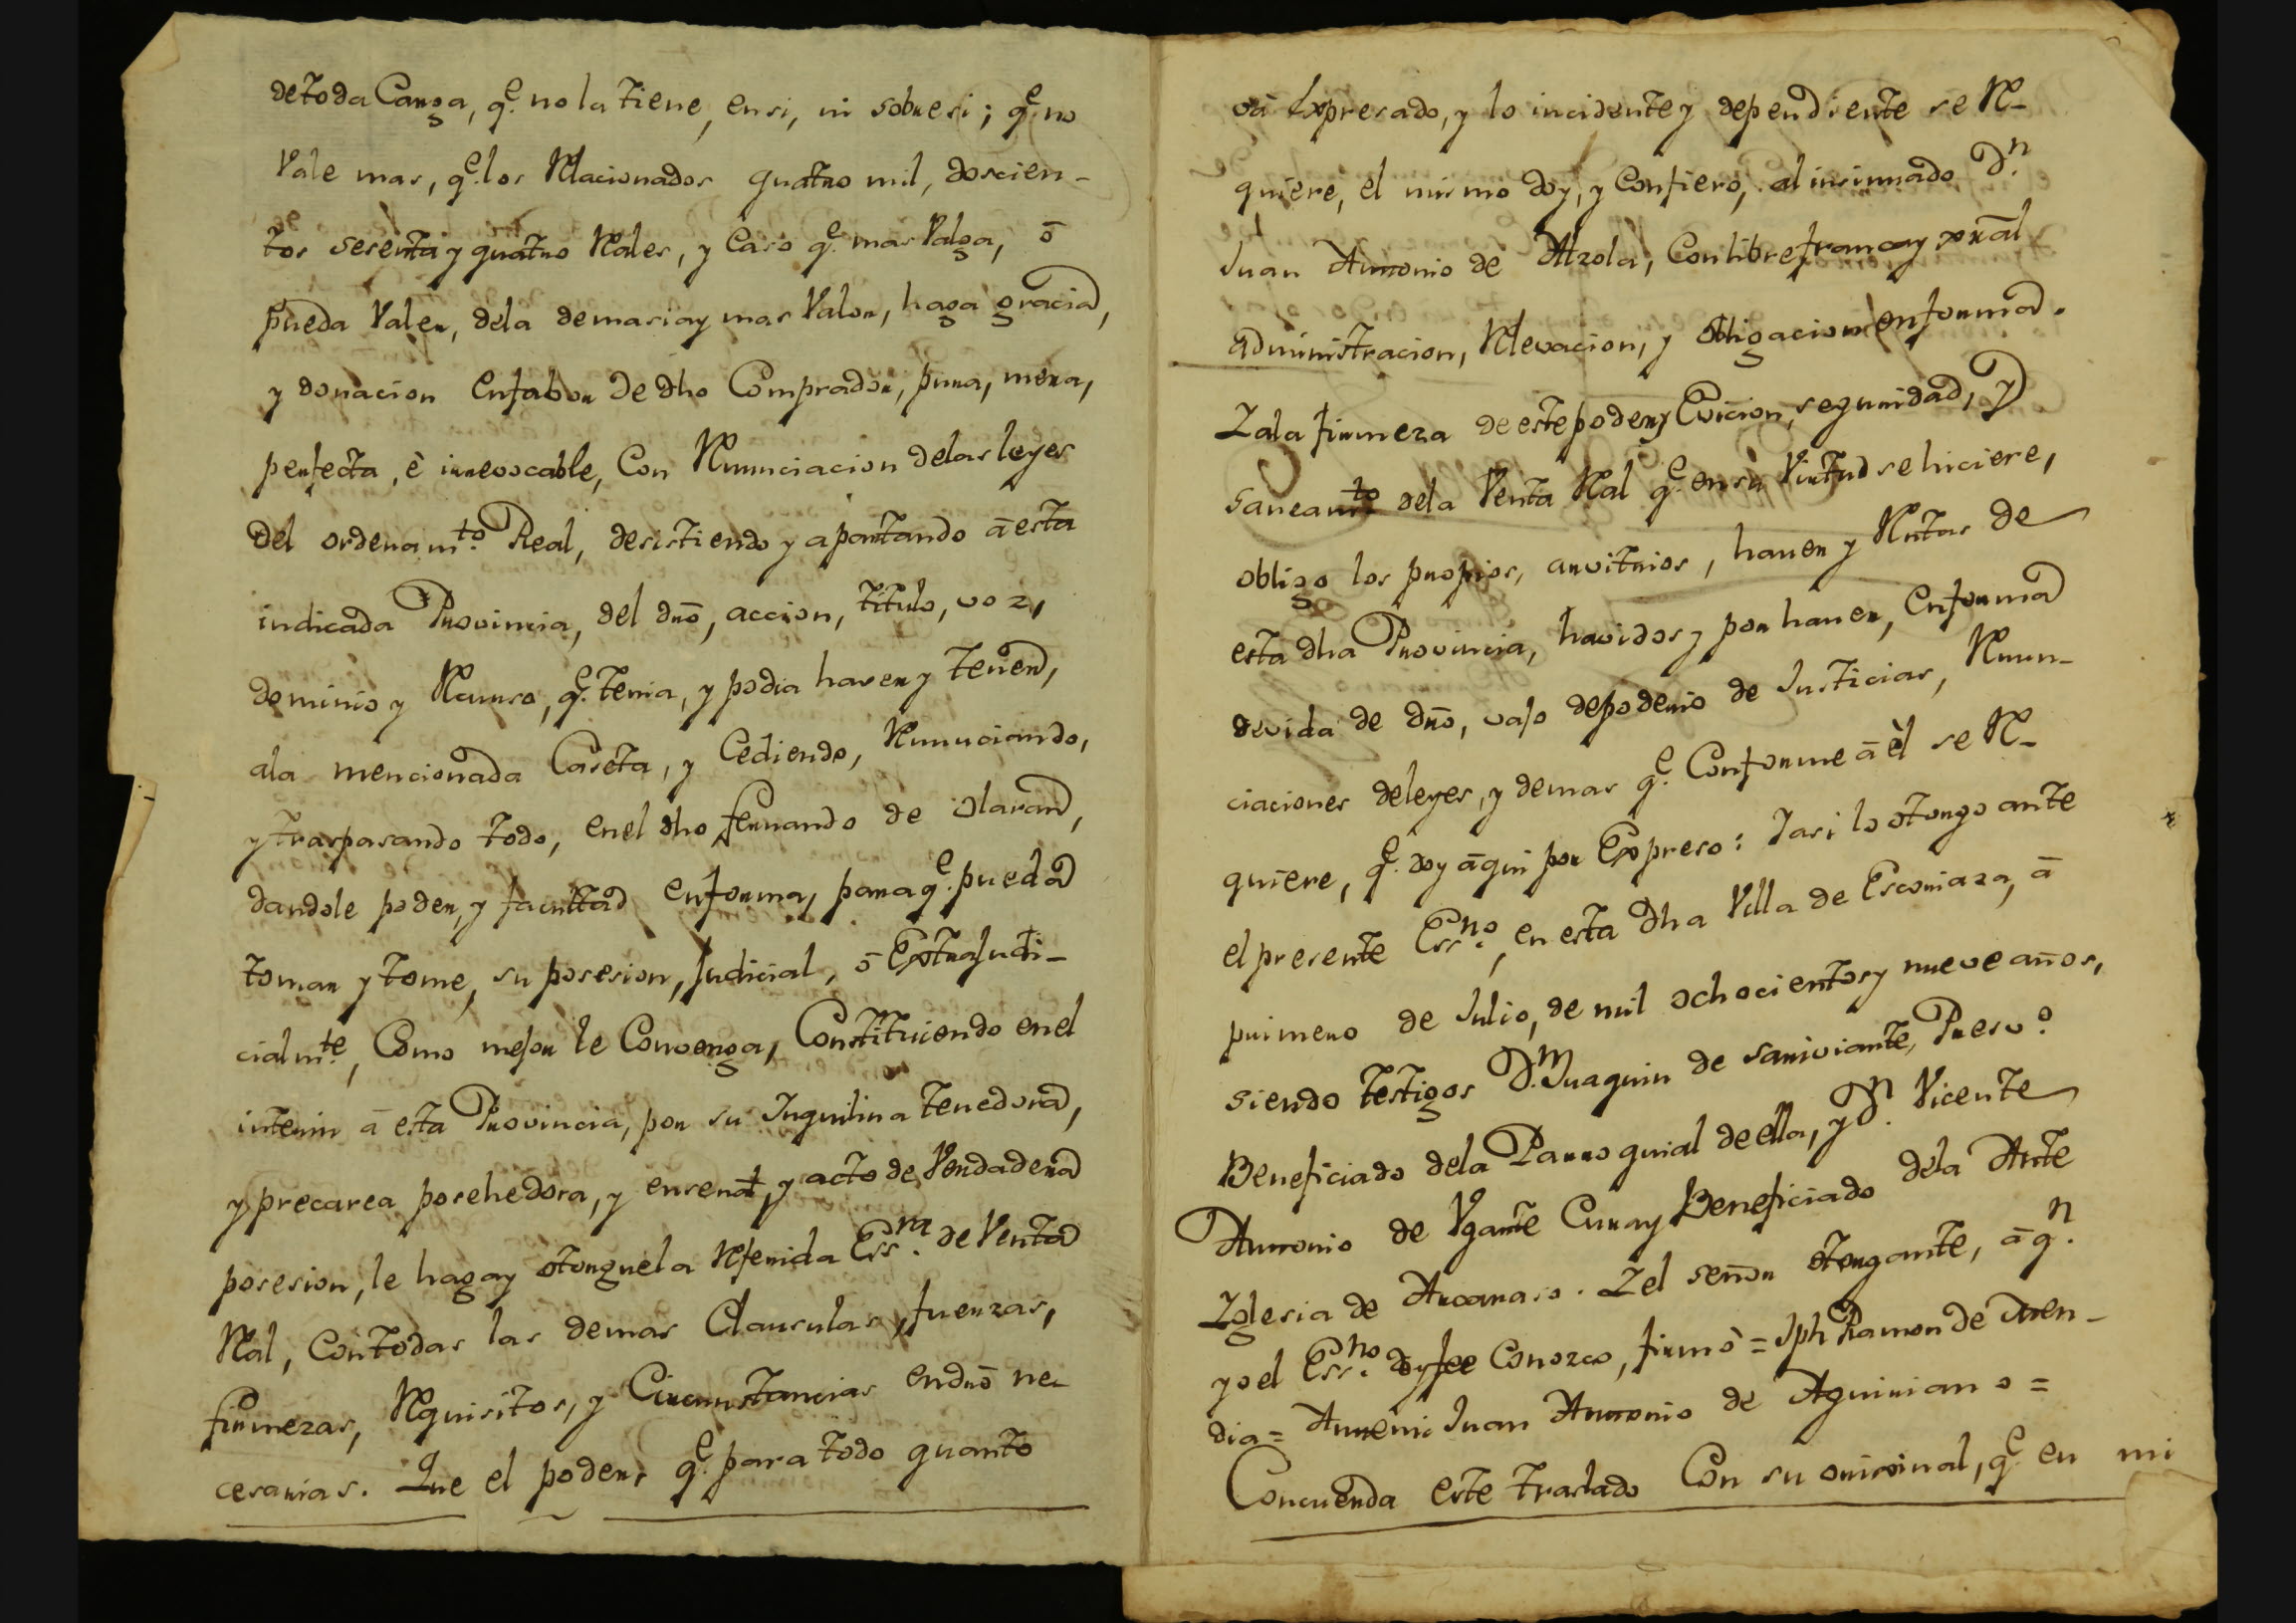 de toda Carga, q.e no la tiene, en si, ni sobre si; q.e no
Vale mas, q.e los Relacionados quatro mil, doscien-
tos sesenta y quatro Reales, y Caso q.e mas Valga, ō
pueda Valer, dela demasia y mas Valor, haga gracia,
y donacion en fabor de dho Comprador, pura, mera,
perfecta, è irrevocable, Con Renunciacion delas leyes
del ordenam.to Real, desistiendo y apartando ā esta
indicada Provincia, del dr̄o, accion, titulo, voz,
dominio y Recurso, q.e tenia, y podia haver y tener,
ala mencionada Caseta, y Cediendo, Renunciando,
y traspasando todo, en el dho fernando de olaran,
dandole poder, y facultad en forma, para q.e pueda
tomar y tome, su posesion, Judicial, ō Extrajudi-
cialm.te, Como mejor le Convenga, Constituiendo en el
interin ā esta Provincia, por su Inquilina tenedora,
y precarea posehedora, y en señal, y acto de Verdadera
posesion, le haga y otorgue la Referida Ess.ra de Venta
Real, Con todas las demas Clausulas, fuerzas,
firmezas, Requisitos, y Circunstancias en dr̄o ne-
cesarias. Que el poder, q.e para todo quanto
vá Expresado, y lo incidente y dependiente se Re-
quiere, el mismo doy, y Confiero, al insinuado D.n
Juan Antonio de Alzola, Con libre franca y gr̄al
administracion, Relevacion, y obligacion en forma.
Y ala firmeza de este poder y Evicion, seguridad, y
saneam.to dela Venta Real q.e en su Virtud se hiciere,
obligo los propios, arvitrios, haver y Rentas de
esta dha Provincia, havidos y por haver, En forma
devida de dr̄o, vajo de poderio de Justicias, Renun-
ciaciones de leyes, y demas q.e Conforme ā èl se Re-
quiere, q.e doy ā qui por Expreso: Y asi lo otorgo ante
el presente Ess.no, en esta dha Villa de Escoriaza, ā
primero de Julio, de mil ochocientos y nueve años,
siendo testigos D.n Juaquin de saniviante, Presv.o
Beneficiado dela Parroquial de ella, y D.n Vicente
Antonio de Ygarte Cura y Beneficiado dela Ante
Yglesia de Arcaraso. Y el señor otorgante, ā q.n
yo el Ess.no doy fee Conozco, firmò = Jph Ramon de Aren-
dia = Antemi Juan Antonio de Aguiriano =
Concuerda este traslado Con su original, q.e en mi